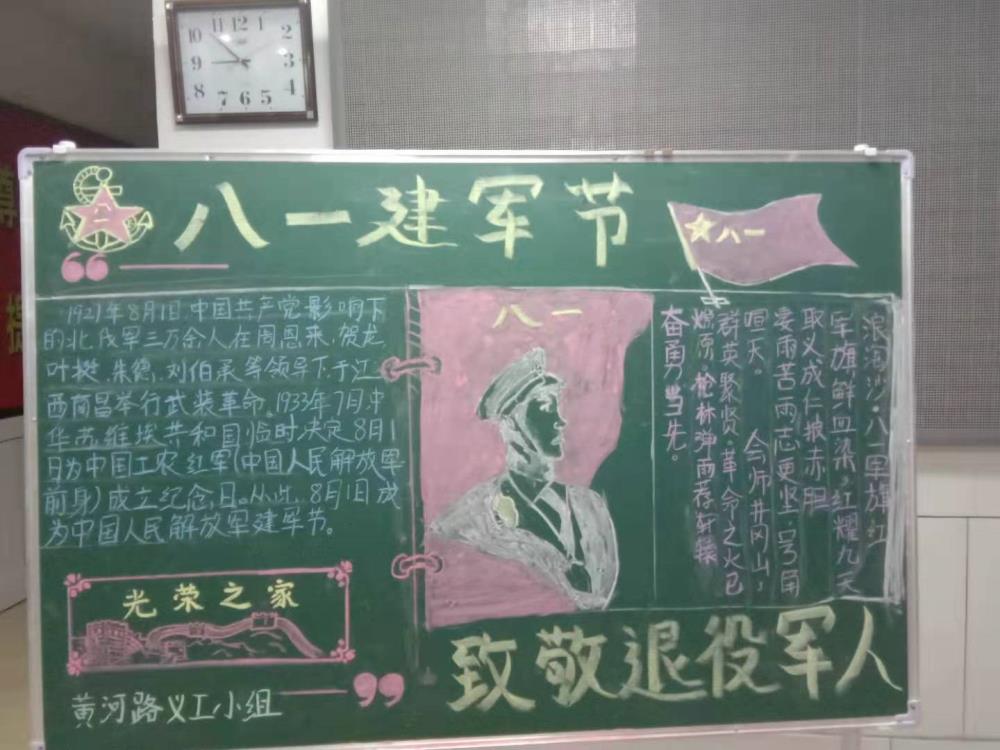 11 12 1
10 2
9 3
8 4
7 6 5
八一
八一建军节
八一
1927年8月1日,中国共产党影响下
的北伐军三万余人在周恩来,贺龙
叶挺,朱德,刘伯承等领导下,于江
西南昌举行武装革命。1933年7月,中
华苏维埃共和国临时决定8月1
日为中国工农红军(中国人民解放军
前身)成立纪念日。从此,8月1日成
为中国人民解放军建军节。
光荣之家
黄河路义工小组
八一
浪淘沙·八一军旗红
军旗鲜血染,红耀九天
取义成仁披赤胆
雨苦雨志更坚,号角
响三天。 会师井冈山,
群英聚贤。革命之火已
燎原。枪林弹雨荐轩辕
奋勇当先。
致敬退役军人